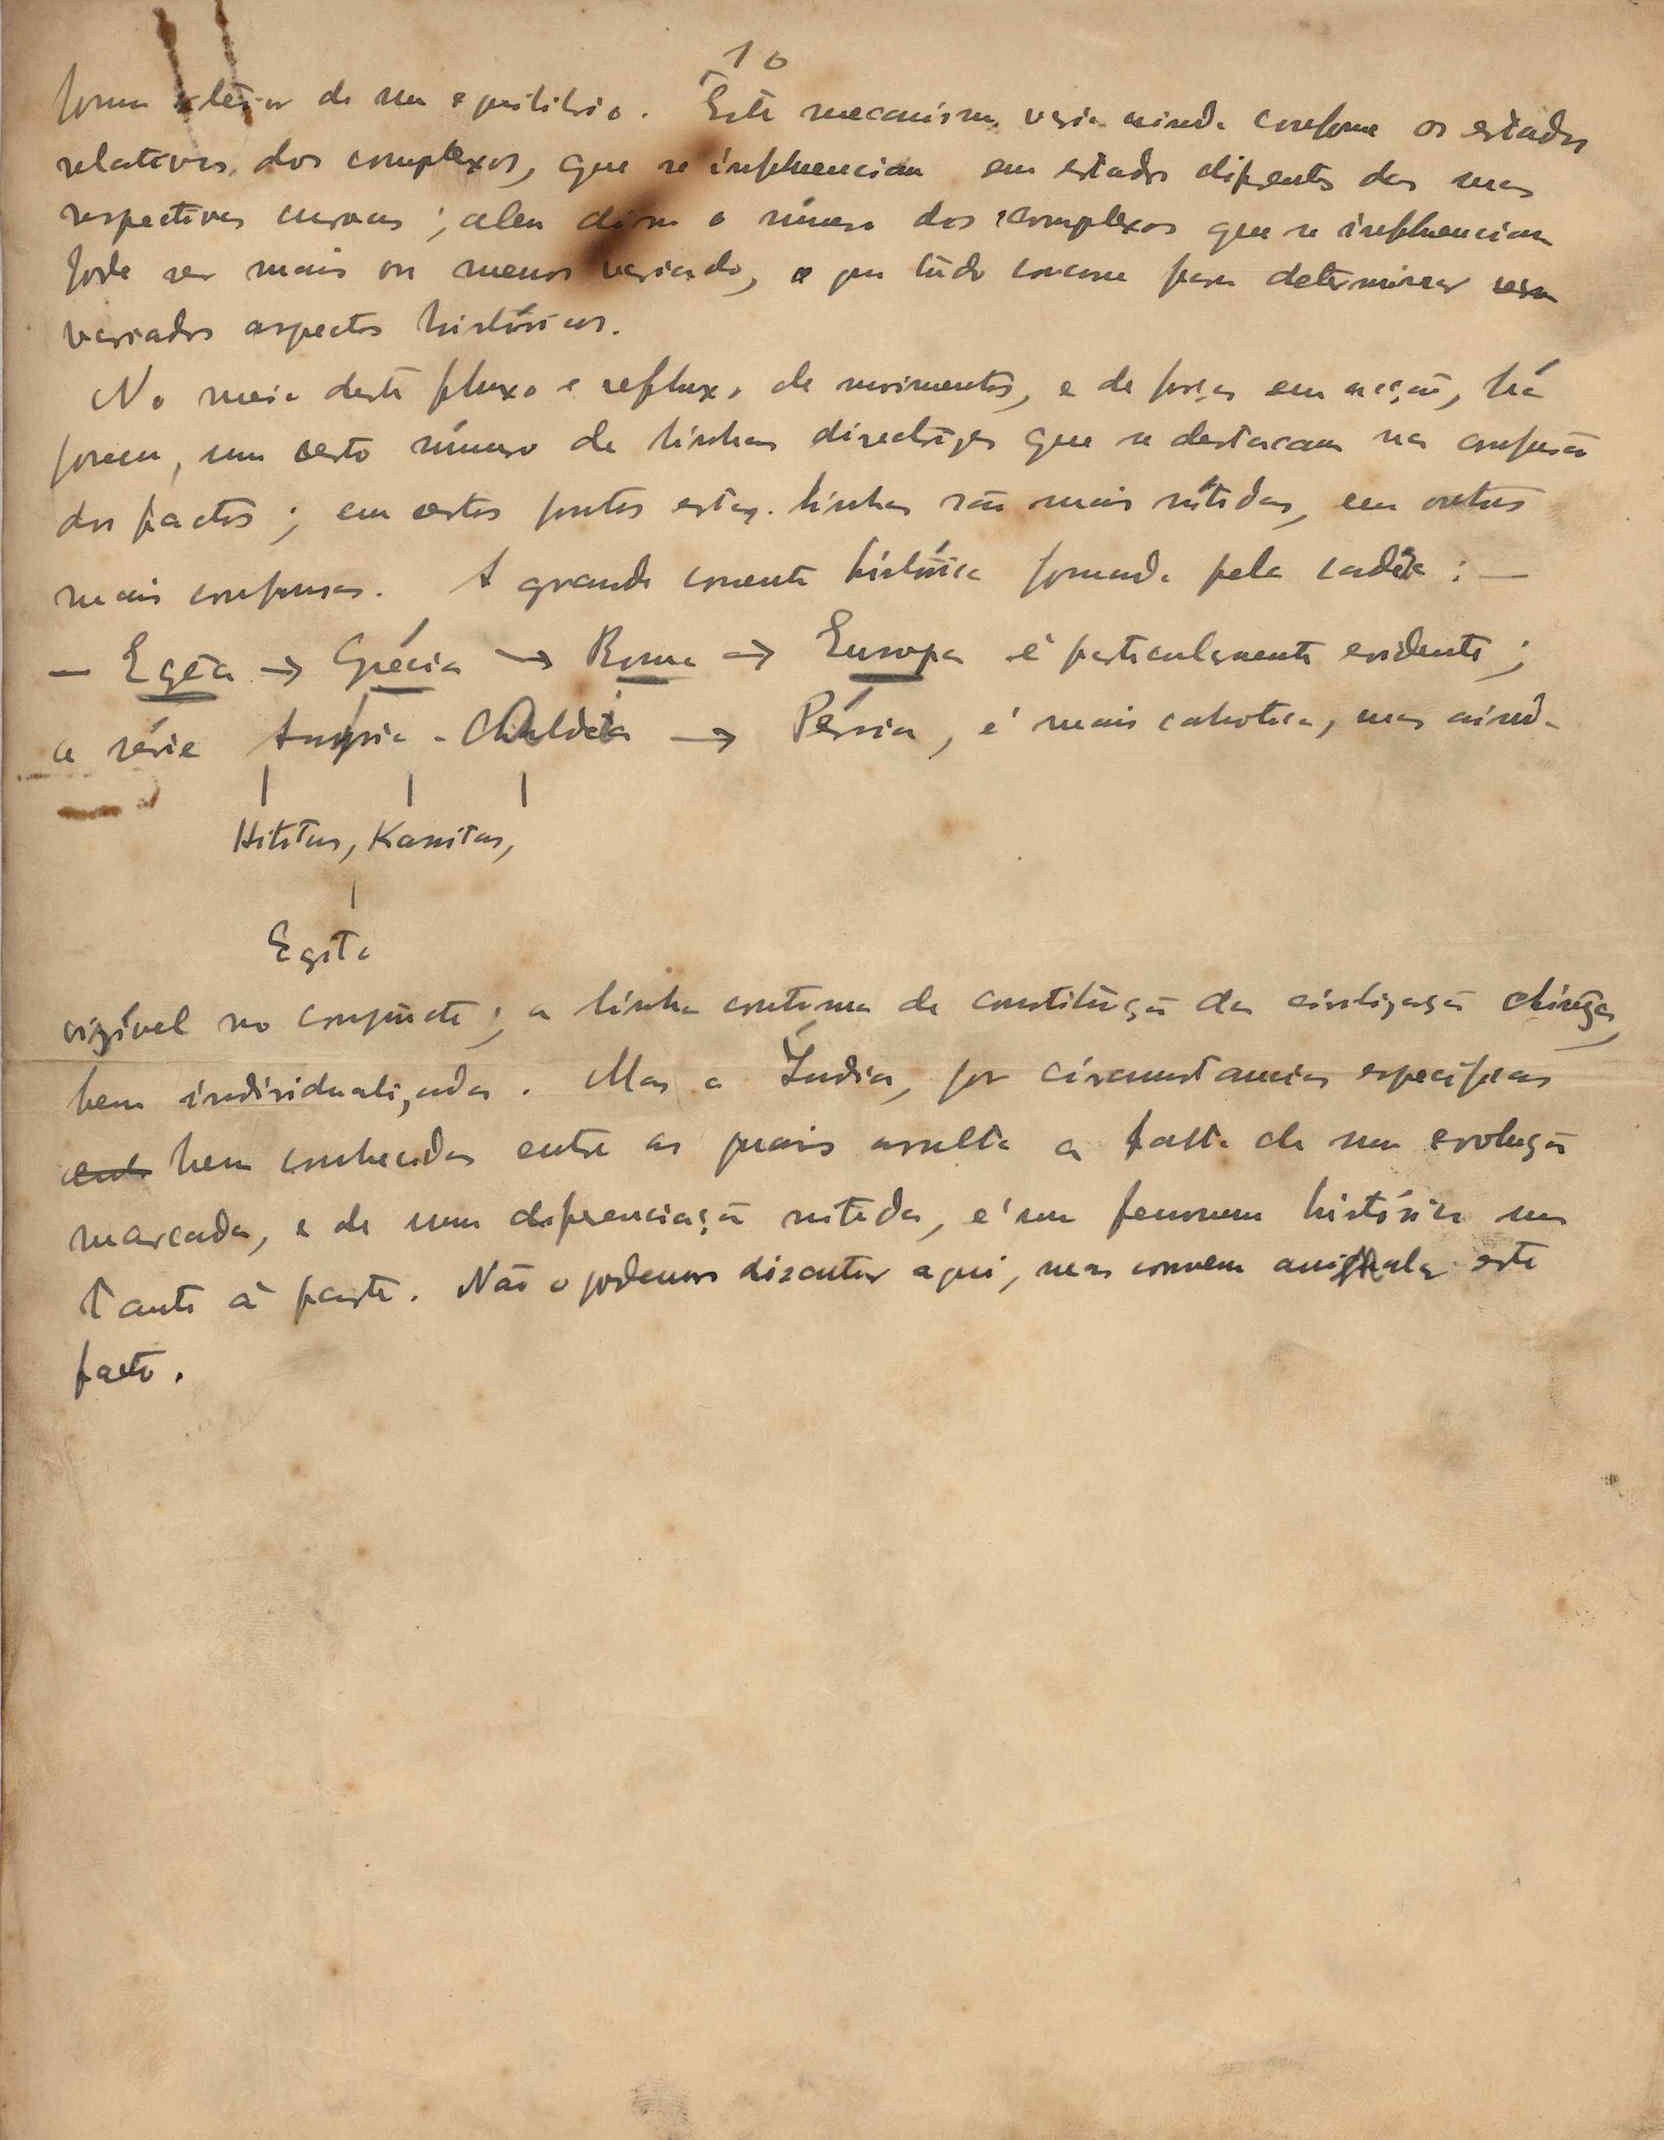 10
forma exterior de um equilibrio. Este mecanismo varia ainda conforme os estados
relativos dos complexos, que se influenciam em estados diferentes das suas
respectivas curvas; alem disso o número dos complexos que se influenciam
pode ser mais ou menos variado, o que tudo concorre para determinar
variados aspectos históricos.
No meio deste fluxo e refluxo de movimentos, e de forças em acção, há
porem, um certo número de linhas directrizes que se destacam na confusão
dos factos; em certos pontos estas linhas são mais nítidas, em outros
mais confusas. A grande corrente histórica formada pela cadeia: —
— Egéa → Grécia → Roma → Europa é particularmente evidente;
a série Assíria - Chaldeia → Pérsia, é mais cahotica, mas ainda
Hititas, Kassitas,
Egito
vizível no conjuncto; a linha contínua de constituição da civilização chineza,
bem individualizada. Mas a Índia, por circumstancias especificas
bem conhecidas entre as quais avulta a falta de uma evolução
marcada, e de uma diferenciação nitida, é um fenomeno histórico um
tanto á parte. Não o podemos discutir aqui, mas convem assignalar este
facto.